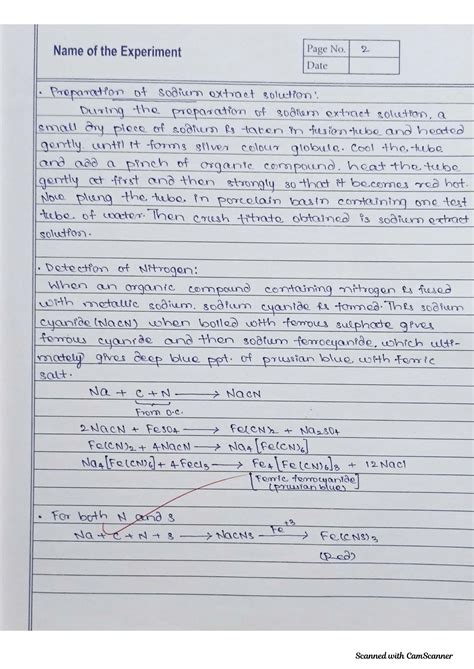 Name of the Experiment
Page No. 2
Date
• Preparation of sodium extract solution:
During the preparation of sodium extract solution, a
small dry piece of sodium is taken in fusion tube and heated
gently until it forms silver colour globule. Cool the tube
and add a pinch of organic compound, heat the tube
gently at first and then strongly so that it becomes red hot.
Now plung the tube in porcelain basin containing one test
tube of water. Then crush titrate obtained is sodium extract
solution.
• Detection of Nitrogen:
When an organic compound containing nitrogen is fused
with metallic sodium, sodium cyanide is formed. This sodium
cyanide (NaCN) when boiled with ferrous sulphate gives
ferrous cyanide and then sodium ferrocyanide, which ulti-
mately gives deep blue ppt. of prusian blue with ferric
salt.
Na + C + N → NaCN
From o.c.
2NaCN + FeSO4 → Fe(CN)2 + Na2SO4
Fe(CN)2 + 4NaCN → Na4[Fe(CN)6]
Na4[Fe(CN)6] + 4FeCl3 → Fe4[Fe(CN)6]3 + 12NaCl
[Ferric ferrocyanide
(prusian blue)]
• For both N and S
Na + C + N + S → NaCNS Fe+3 → Fe(CNS)3
(Red)
Scanned with CamScanner